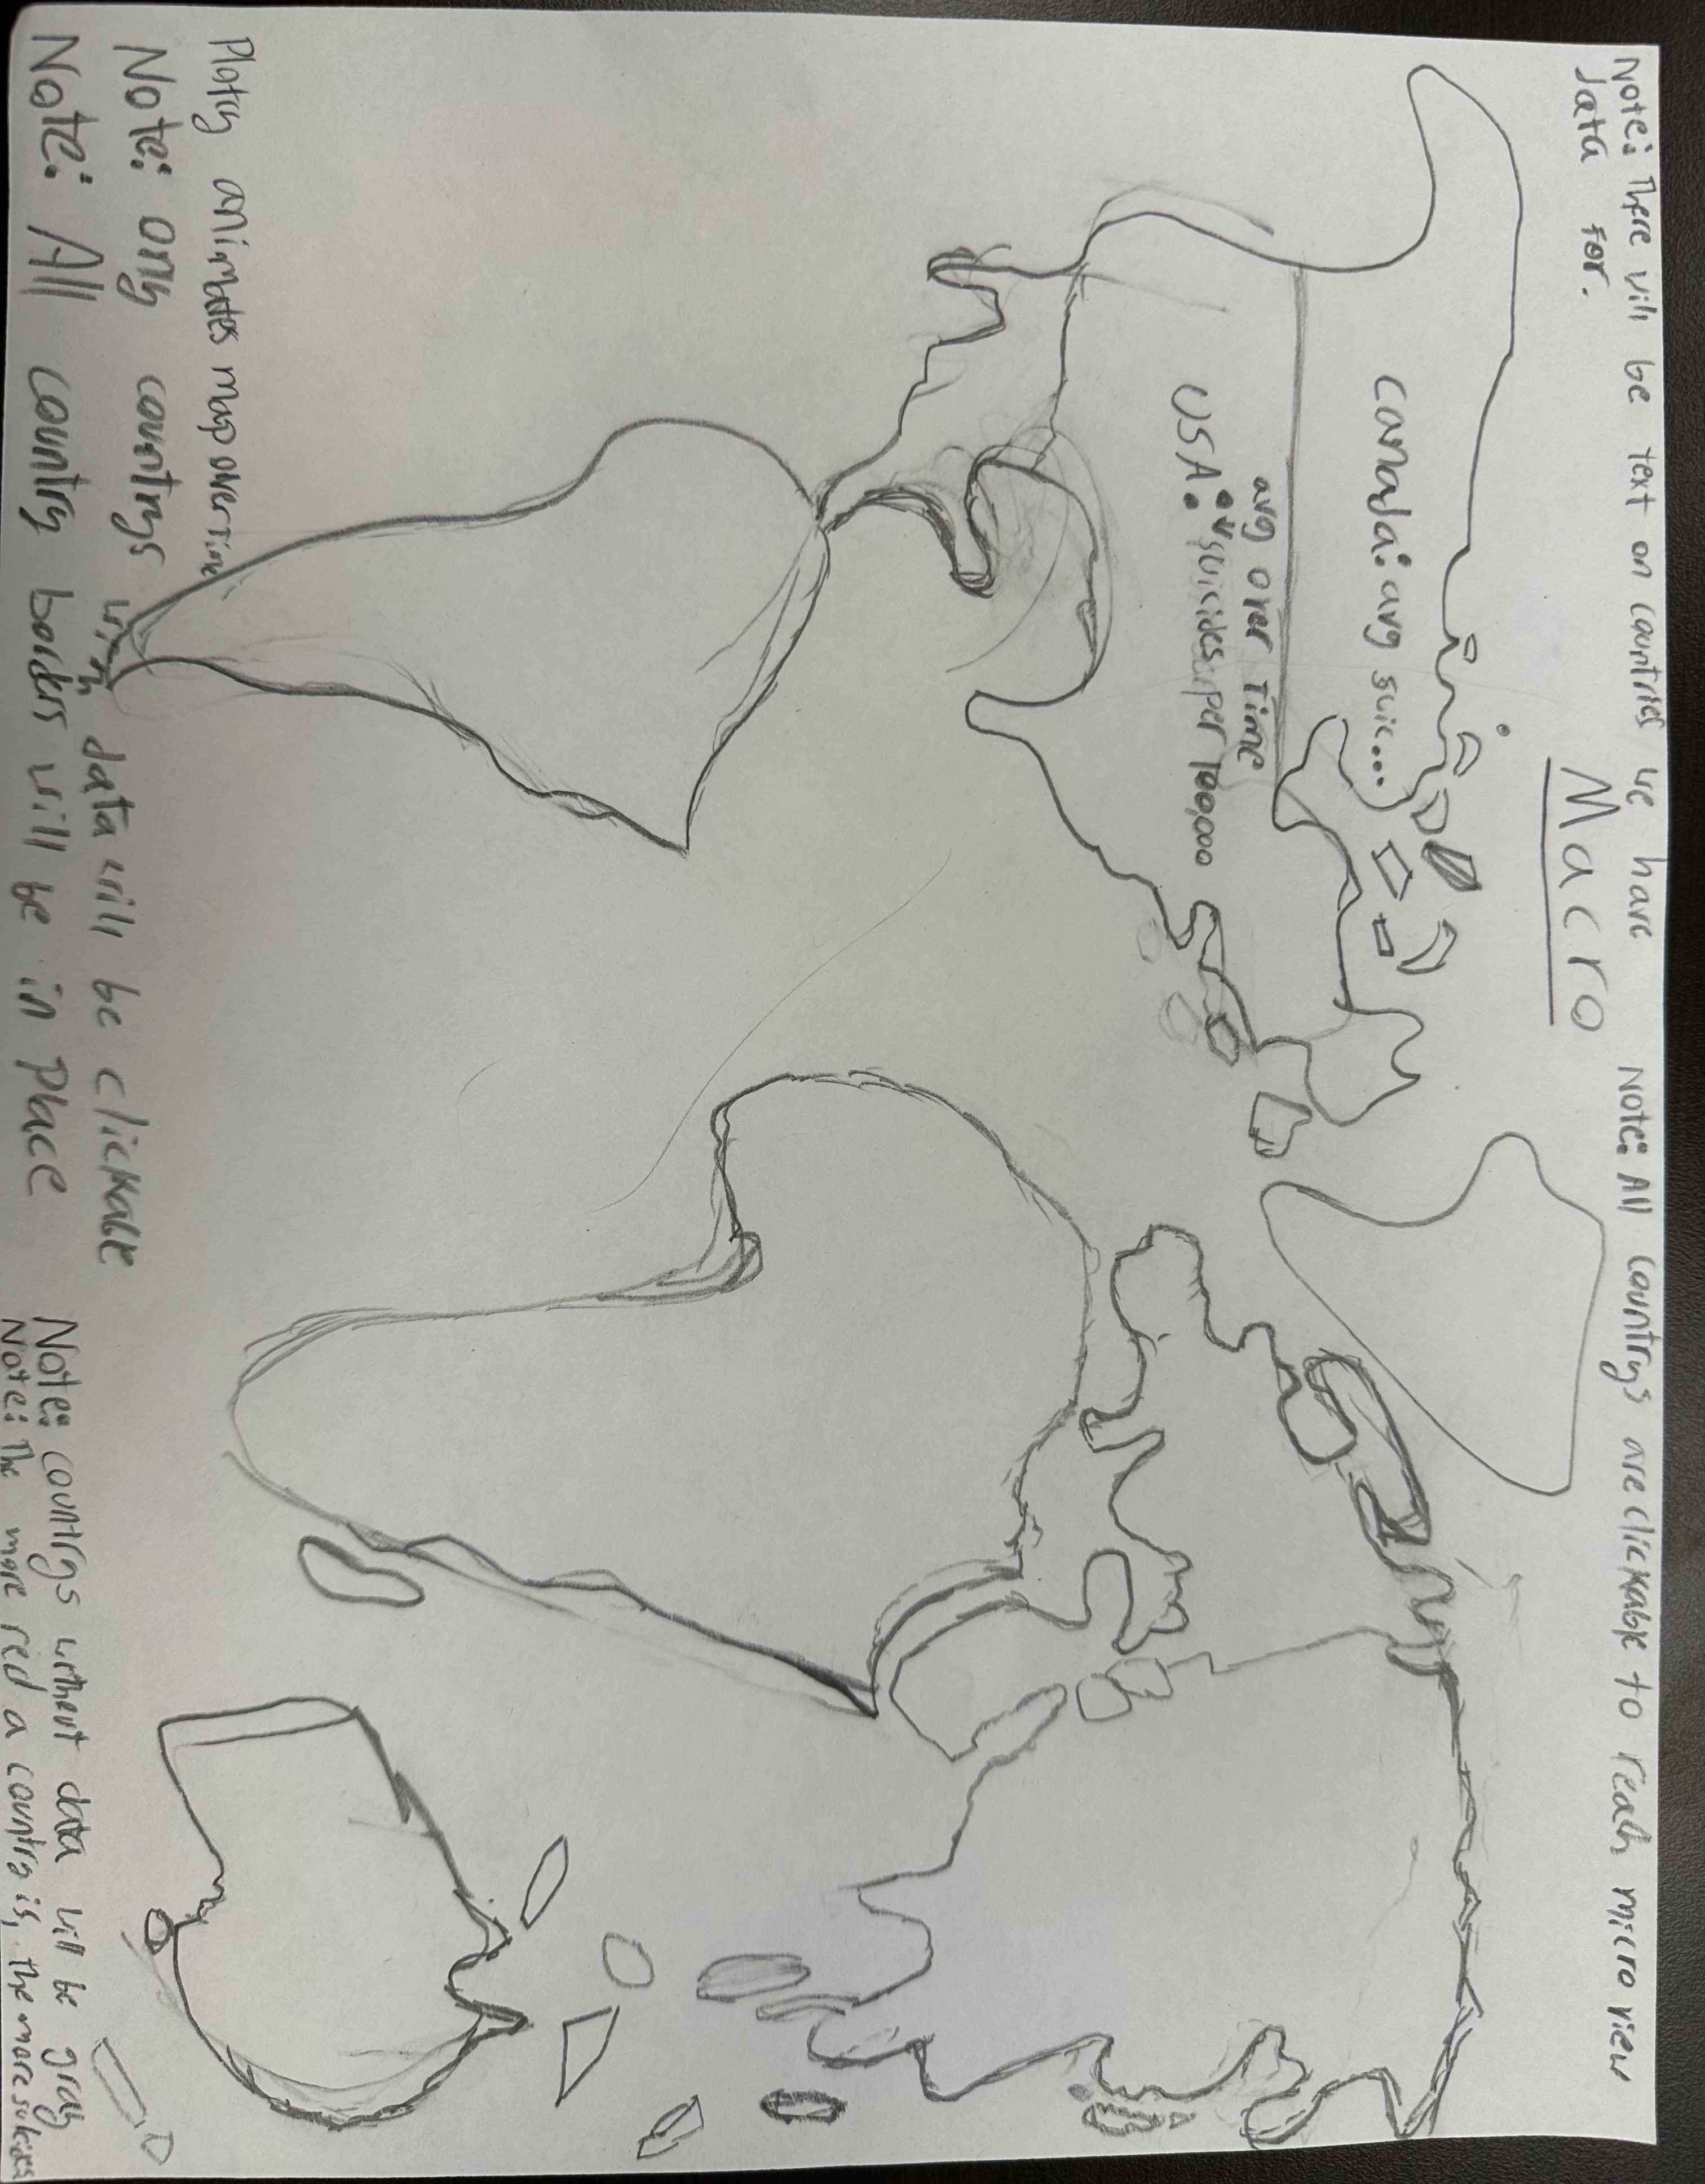 Note: There will be text on countries we have
data for.
Macro
Note: All countrys are clickable to reach micro view
Canada: avg suic...
avg over time
USA: suicides per 100,000
Plotly animates map over time
Note: only countrys with data will be clickable
Note: All country borders will be in place
Note: countrys without data will be gray
Note: The more red a country is, the more suicides